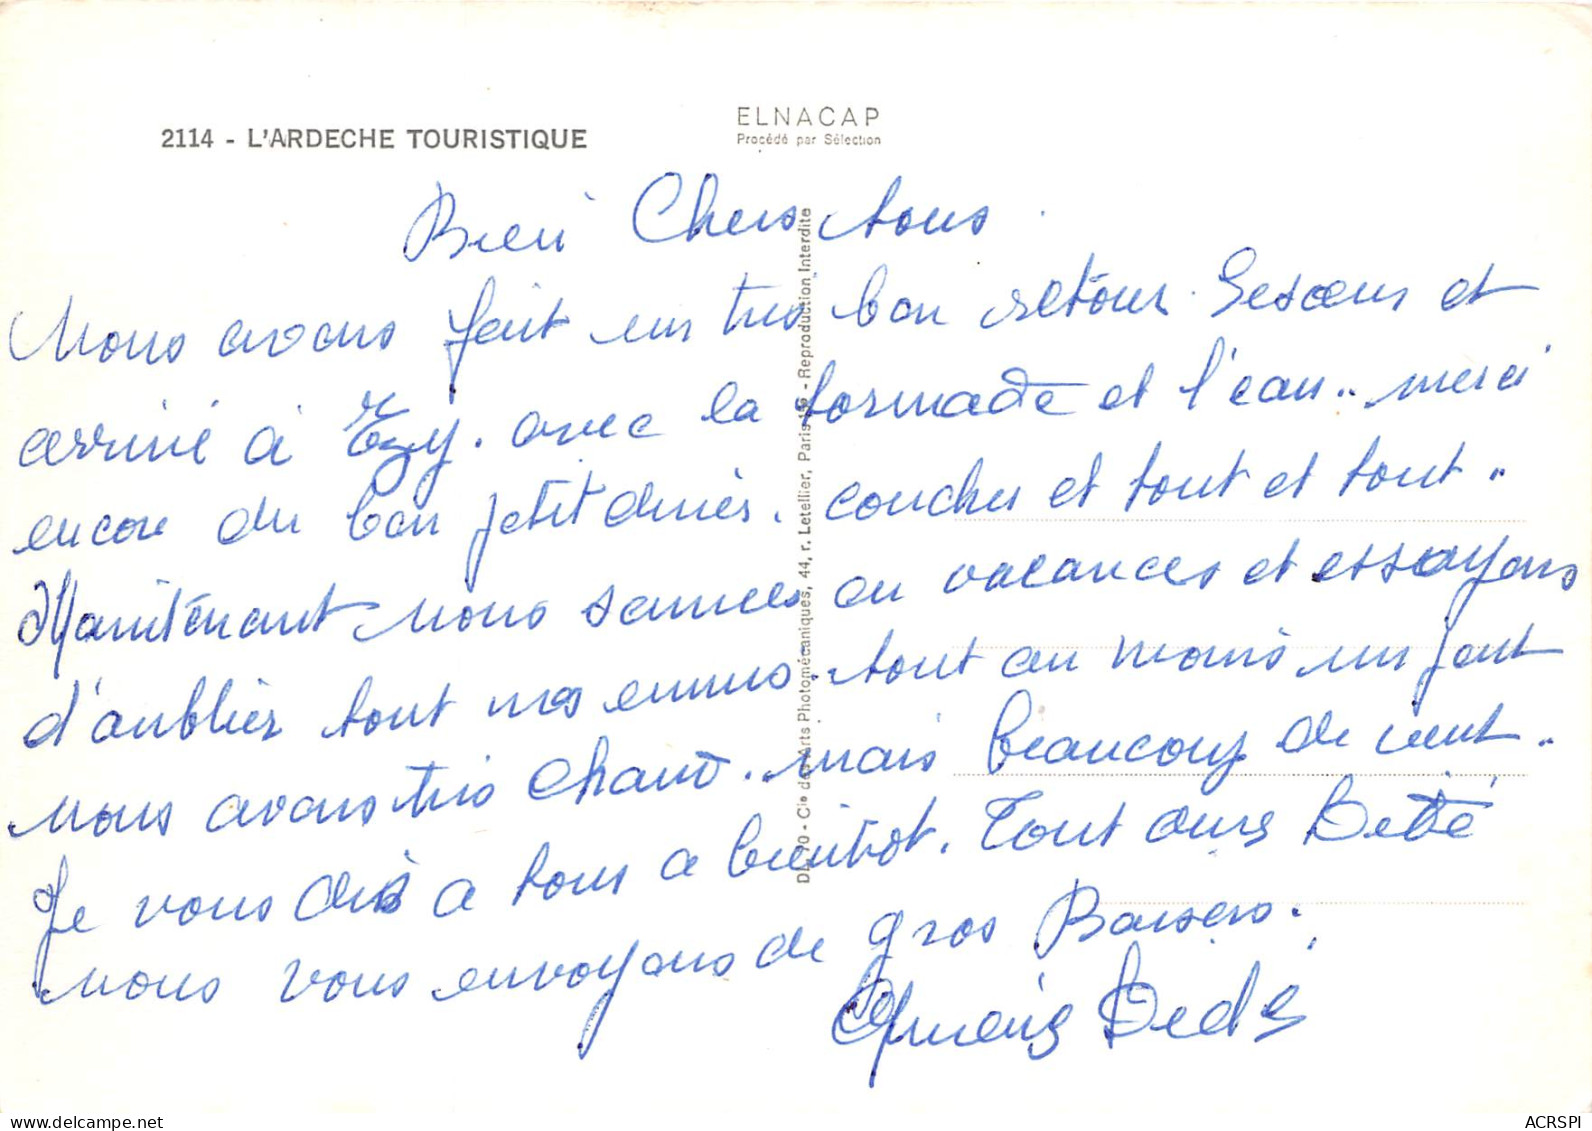 2114 - L'ARDECHE TOURISTIQUE
ELNACAP
Procédé par Sélection
Bien Chers tous
Nous avons fait un tres bon retour. et
arrivé à Ezy. avec la tornade et l'eau.. merci
encore du bon petit diner. coucher et tout et tout..
Maintenant nous sommes en vacances et essayons
d'oublier tout nos ennuis. tout au moins un peut
nous avons tres chaud. mais beaucoup de vent.
Je vous dis a tous a bientot. Tout dure Bebé
nous vous envoyons de gros Baisers.
Dedé
DL 70 - Cie des Arts Photomécaniques, 44, r. Letellier, Paris 15e - Reproduction Interdite
delcampe.net
ACRSPI